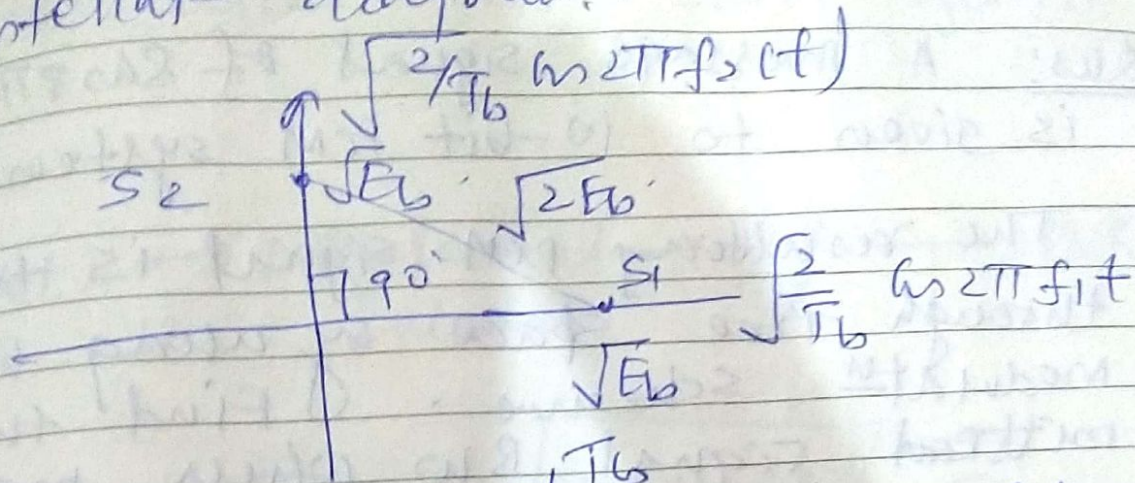 √2/Tb Cos 2πf2(t)
S2 √Eb √2Eb
90° S1 √2/Tb Cos 2πf1t
√Eb
Tb